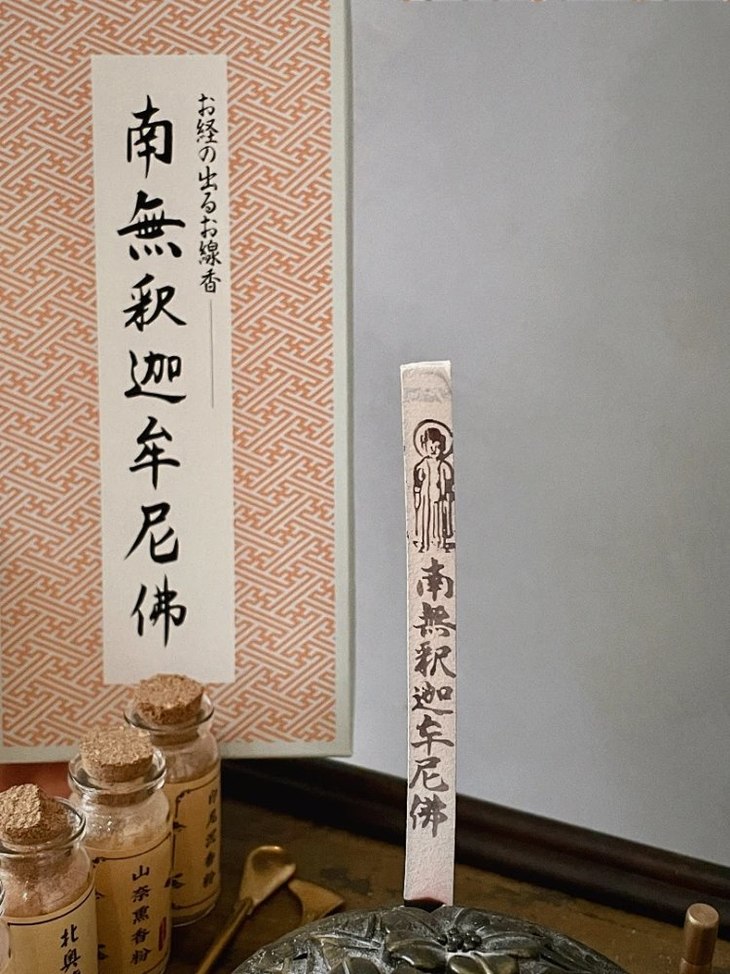 お経の出るお線香
南無釈迦牟尼佛
南無釈迦牟尼佛
山奈薫香粉
北奥